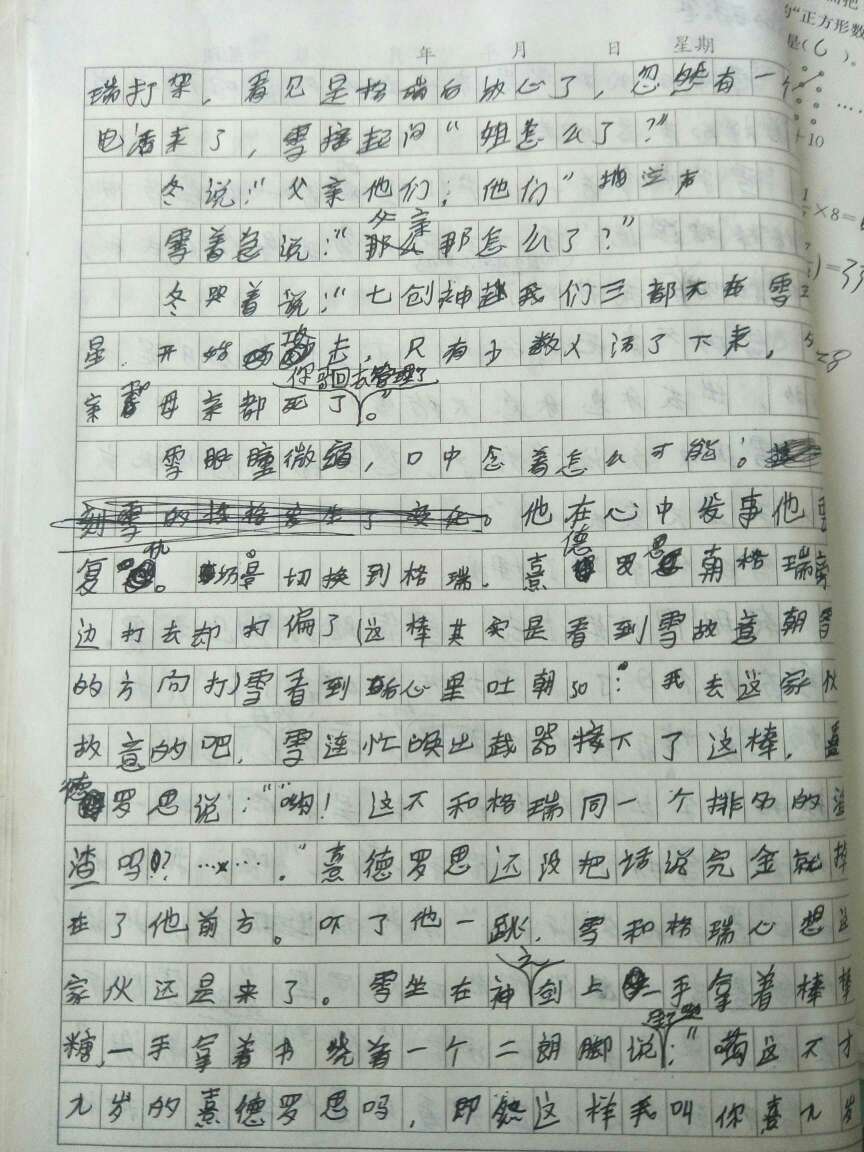 年 月 日 星期
瑞打架，看见是格瑞后放心了，忽然有一个
电话来了，雪接起问“姐怎么了？”
冬说：“父亲他们；他们”抽泣声
雪着急说：“父亲那怎么了？”
冬哭着说：“七创神趁我们三都不在雪
星.开始攻击，只有少数人活了下来，
你哥回去管理了
亲母亲都死了。”
雪眼瞳微缩，口中念着怎么可能！。
他在心中发事他
复仇。场景切换到格瑞.熹德罗思朝格瑞旁
边打去却打偏了(这棒其实是看到雪故意朝雪
的方向打)雪看到后心里吐朝so：“我去这家伙
故意的吧，雪连忙唤出武器接下了这棒，
德罗思说：“哟！这不和格瑞同一个排名的渣
渣吗!?……。”熹德罗思还没把话说完金就掉
在了他前方。吓了他一跳，雪和格瑞心想这
家伙还是来了。雪坐在神之剑上一手拿着棒棒
糖，一手拿着书 绕着一个二朗脚说：“哟这不才
九岁的熹德罗思吗，即然这样我叫你熹九岁
正方形数
是(6)。
+10
×8=